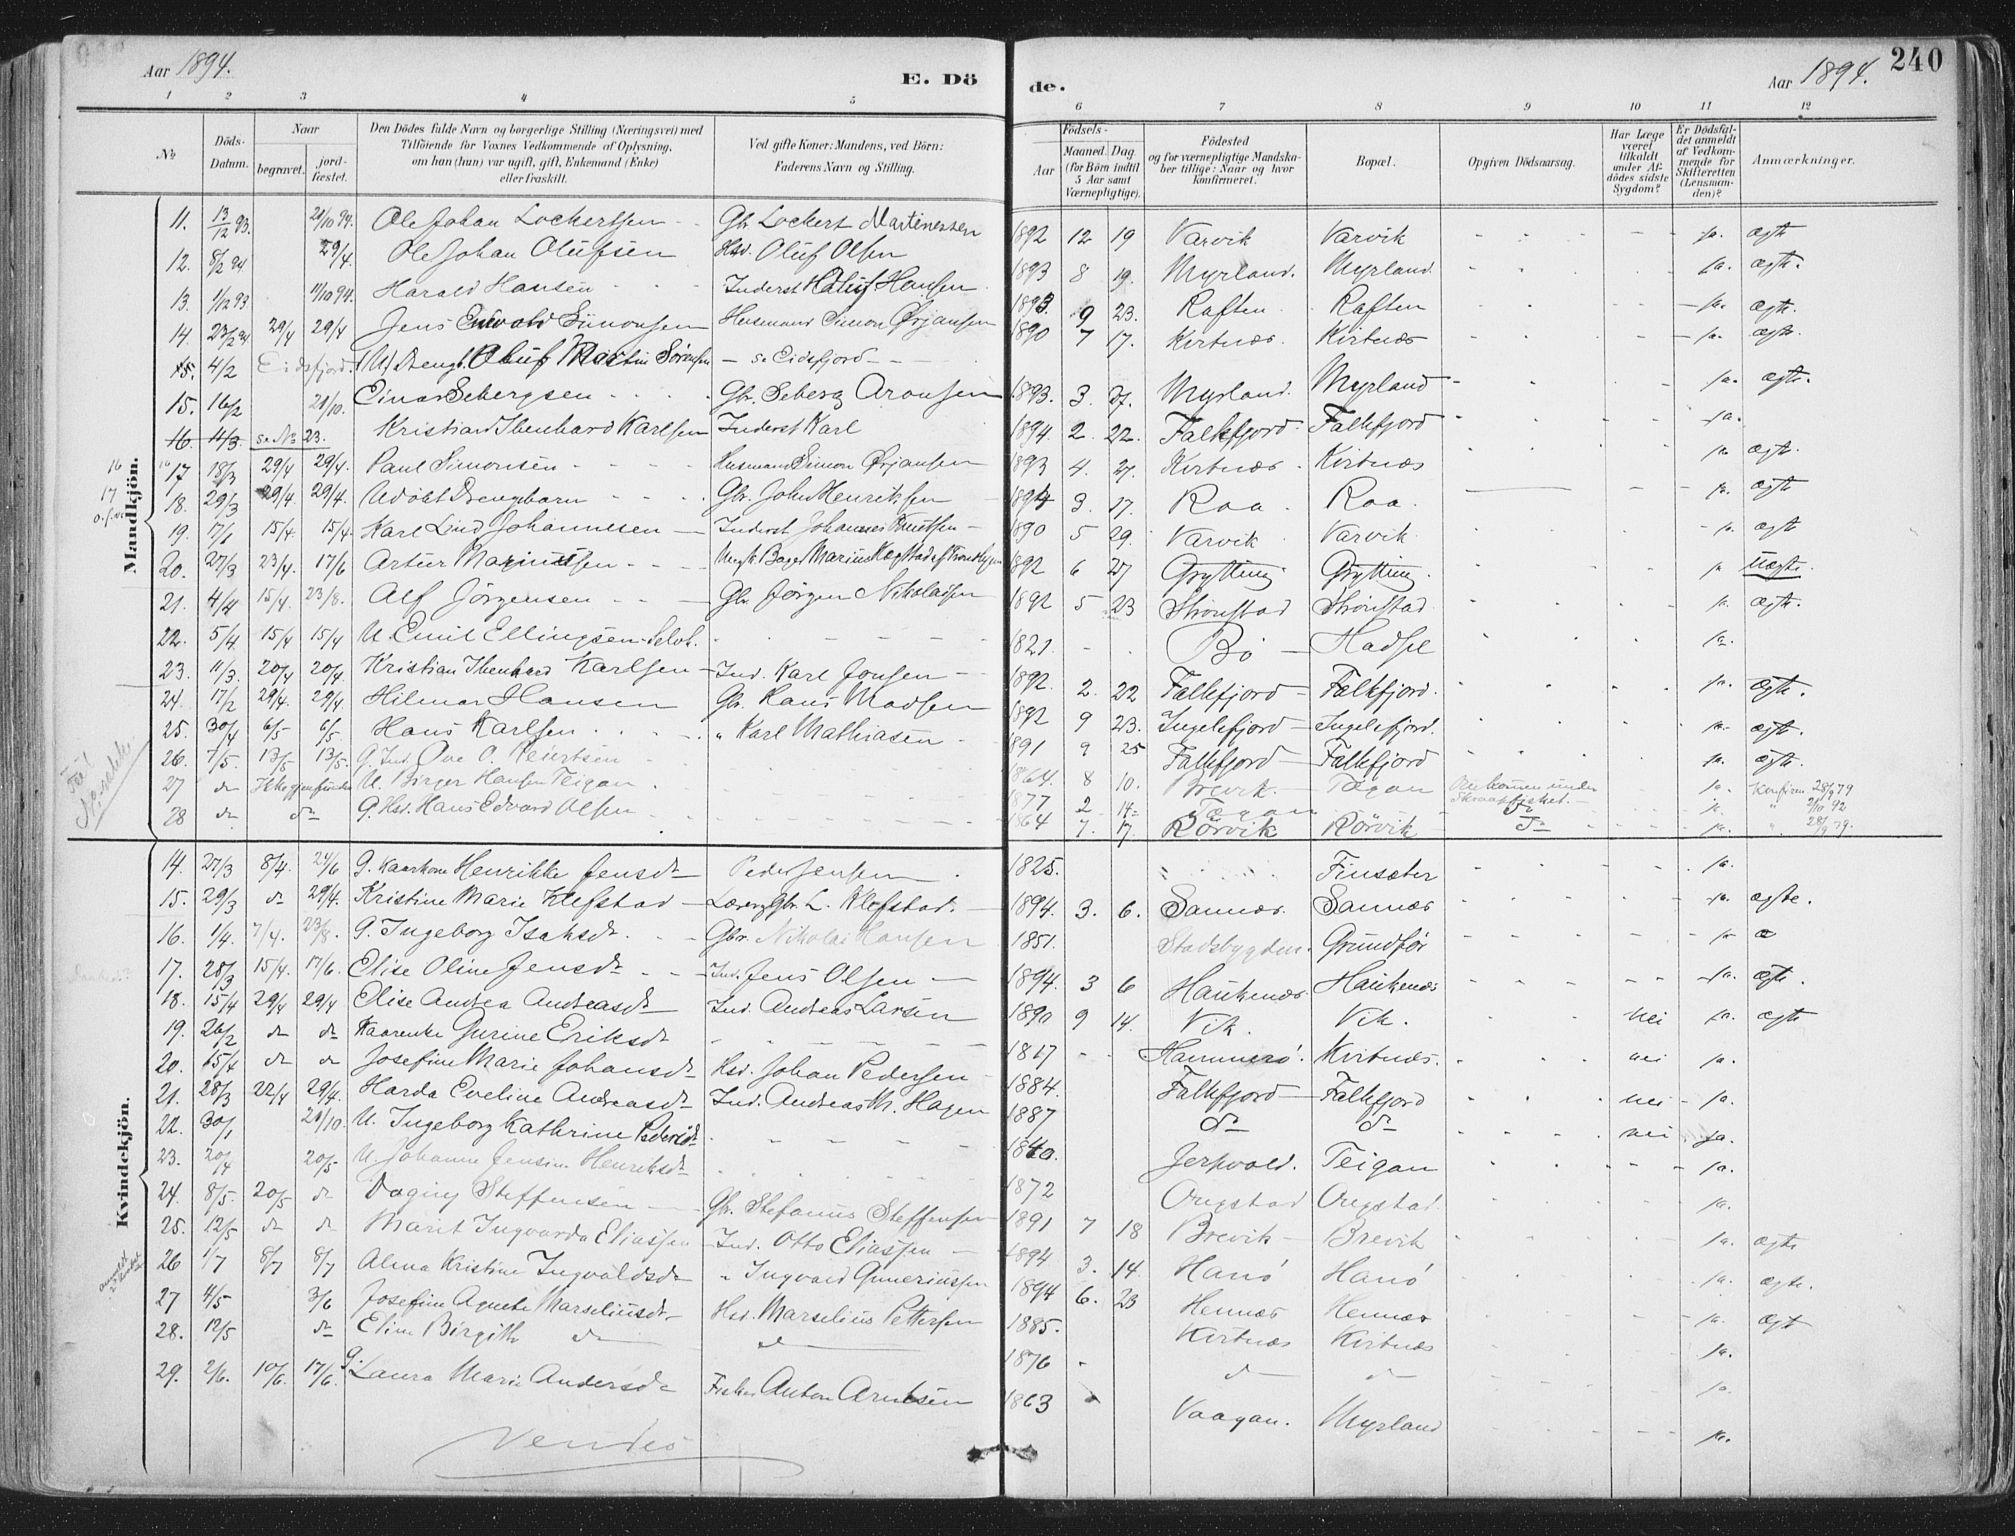 Aar 1894.
E. Dö
de.
Aar 1894.
240
1 2 3 4 5 6 7 8 9 10 11 12
No
Döds-Datum.
Naar
begravet.
jord-fæstet.
Den Dödes fulde Navn og borgerlige Stilling (Næringsvei) med Tilföiende for Voxnes Vedkommende af Oplysning, om han (hun) var ugift, gift, Enkemand (Enke) eller fraskilt.
Ved gifte Koner: Mandens, ved Börn: Faderens Navn og Stilling.
Födsels-
Aar
Maaned. Dag
(for Börn indtil 5 Aar samt Værnepligtige).
Födested og for værnepligtige Mandskaber tillige: Naar og hvor konfirmeret.
Bopæl.
Opgiven Dödsaarsag.
Har Læge været tilkaldt under Afdödes sidste Sygdom?
Er Dödsfaldet anmeldt af Vedkommende for Skifteretten (Lensmanden)?
Anmærkninger.
Mandkjön.
11. 13/12 93. Ole Johan Lockertsen Gbr. Lockert Martinessen 1892 12 19 Varvik Varvik ja. ægte
12. 8/2 94 29/4. Ole Johan Olufsen Hsd. Oluf Olsen 1893 8 19. Myrland. Myrland. ja. ægte.
13. 1/12 93 Harald Hansen Inderst Hansen 1893 9 23. Raften Raften ja. ægte.
14. 29/4 29/4 Jens Simonsen Husmand Simon Ørjansen 1890 7 17. Kvitnæs. Kvitnæs ja. ægte.
15. 4/2 Eidsfjord. Oluf Martin Sørensen se Eidsfjord
15. 16/2 Einar Sebergsen Gbr. Seberg Aronsen 1893. 3. 27. Myrland. Myrland ja. ægte.
16. 11/3. se No 23. Kristian Ibenhard Karlsen Inderst Karl 1894 2. 22. Falkfjord. Falkfjord ja.
17 18/3 29/4 29/4. Paul Simonsen Husmand Simon Ørjansen 1893 4. 27. Kvitnæs. Kvitnæs ja. ægte.
18. 29/3 29/4. 29/4. Udöbt Drengebarn Gbr. John Henriksen 1894 3. 17. Roa Roa. ja. ægte
19. 7/1 15/4. 15/4. Karl Lind Johannesen Inderst Johannes Knutsen 1890 5 29. Varvik Varvik ja. ægte
20. 27/3 23/4. 17/6 Artur Mariussen 1892 6 27 Grytting Grytting. ja Uægte.
21. 4/4 15/4. 23/8. Alf Jörgensen Gbr. Jørgen Nikolaisen 1892 5 23 Strönstad Strönstad ja. ægte.
22. 5/4. 15/4 15/4 U. Emil Ellingsen 1821. Bö Hadsel ja.
23. 11/3. 20/4 20/4. Kristian Ibenhard Karlsen Ind. Karl Jonsen 1892. 2. 22 Falkfjord Falkfjord. ja. ægte.
24. 17/2 29/4. 29/4 Hilmar Hansen Gbr. Hans Madsen 1892 9 23. Ingelsfjord Ingelsfjord. ja. ægte.
25. 30/4 6/5 6/5 Hans Karlsen " Karl Mathiasen 1891 9 25 Falkfjord Falkfjord ja. ægte.
26. 7/5 13/5 13/5. G. Ind. Ove O. 1864. 8 10. Brevik. Tægan Omkommen under Skreifisket. ja. Konfirm. 28/9 79
27 do Ikke gjenfunden U. Birger Hansen Teigan 1877 2 14 Tægan do ja. 92
28 do do G. Hsd. Hans Edvard Olsen 1864 7. 7. Rörvik Rörvik do ja. 28/9 79.
Kvindekjön.
14. 27/3 8/4. 24/6 G. Kaarkone Henrikke Jensdr Peder Jensen 1825. Finsæter ja.
15. 29/3 do 29/4. Kristine Marie Klefstad L. Klefstad. 1894. 3. 6. Sannæs. Sannæs ja. ægte.
16. 1/4. 7/4. 23/8. G. Ingeborg Isaksdr. Gbr. Nikolai Hansen 1851. Stadsbygden. Grundfør ja
17. 28/3 15/4. 17/6. Elise Oline Jensdr Ind. Jens Olsen 1894. 3 6 Haukenæs. Haukenæs ja. ægte.
18. 15/4 29/4 29/4 Elise Andrea Andreasdr Ind. Andreas Larsen 1890 9 14. Vik. Vik. nei ja. ægte
19. 26/2 do do Kaarenke Gurine Eriksdr 1817 Hammerö. Kvitnæs. nei ja.
20. 15/4 do do Josefine Marie Johansdr Hsd. Johan Pedersen 1884. Falkfjord Falkfjord nei ja.
21. 28/3 22/4 29/4. Harda Eveline Andreasdr Ind. Andreas M. Hagen 1887 do do nei ja.
22. 30/1 U. Ingeborg Kathrine Pedersdr 1840. Jerpvold. Teigan ja.
23. 20/4 20/5 U. Johanne Jensine Henriksdr 1872 Ongstad Ongstad. ja.
24. 8/5. 20/5 do Dagny Steffensen Gbr. Stefanus Steffensen 1891 7 18 Brevik Brevik ja. ægte
25. 12/5 do do Marit Ingvarda Eliassen Ind. Otto Eliassen 1894 3. 14. Hanö Hanö ja. ægte.
26 1/7 8/7 8/7 Alma Kristine Ingvaldsdr " Ingvald Gunneriussen 1894 6. 23 Hennæs Hennæs ja. ægte
27 4/5 3/6 Josefine Agnete Marseliusdr Hsd. Marselius Pettersen 1885. Kvitnæs Kvitnæs ja.
28. 12/5 do Eline Birgith do do 1876 do do ja.
29. 2/6. 10/6. 17/6. G. Laura Marie Andersdr Fisker Anton Arntsen 1863 Vaagan. Myrland ja.
Vendes